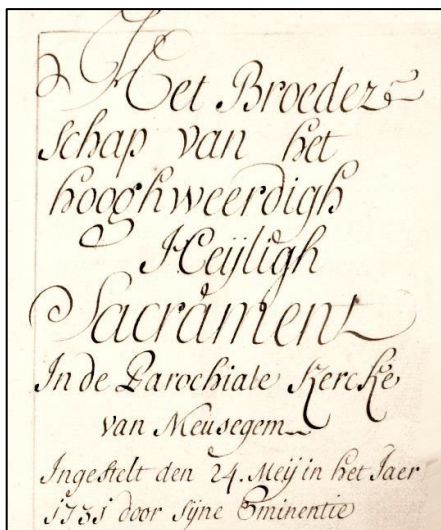 Het Broeder
schap van het
hooghweerdigh
Heijligh
Sacrament
In de Parochiale Kercke
van Meusegem
Ingestelt den 24. Meij in het Jaer
1731 door sijne Eminentie